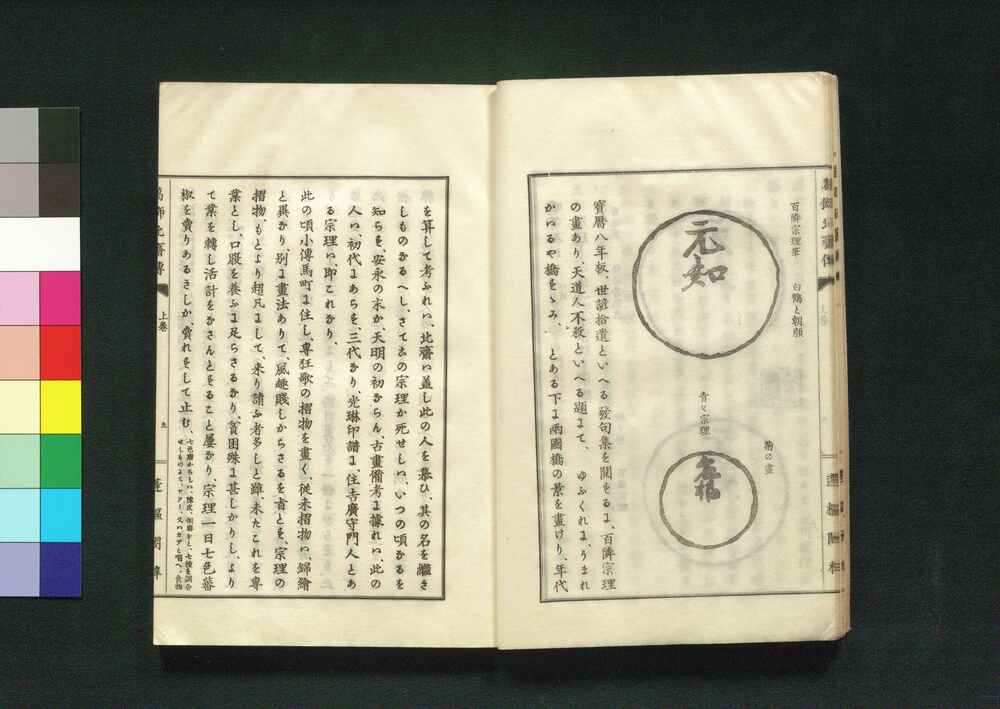 百隣宗理筆　白鷄と朝顔
元知
青々宗理
菊の畫
寶暦八年板、世諺拾遺といへる發句集を閲るに、百隣宗理
の畫あり、天道人不殺といへる題にて、ゆふくれにうまれ
かはるや橋すゞみ、とある下に兩國橋の景を畫けり、年代
を算して考ふれば、北齋は蓋し此の人を慕ひ、其の名を繼き
しものなるへし、さてこの宗理か死せしは、いつの頃なるを
知らす、安永の末か、天明の初ならん、古畫備考に據れは、此の
人は、初代にあらす、三代なり、光琳印譜に、住吉廣守門人とあ
る宗理は、即これなり、
此の頃小傳馬町に住し、專狂歌の摺物を畫く、從來摺物は、錦繪
と異なり、別に畫法ありて、風趣賤しからさるを旨とす、宗理の
摺物、もとより超凡にして、來り請ふ者多しと雖未たこれを專
業とし、口腹を養ふに足らさるなり、貧困殊に甚しかりし、より
て業を轉し活計をなさんとすること屢なり、宗理一日七色蕃
椒を賣りあるきしか、賣れすして止む、
葛飾北齋傳
上卷
九
蓬樞閣梓